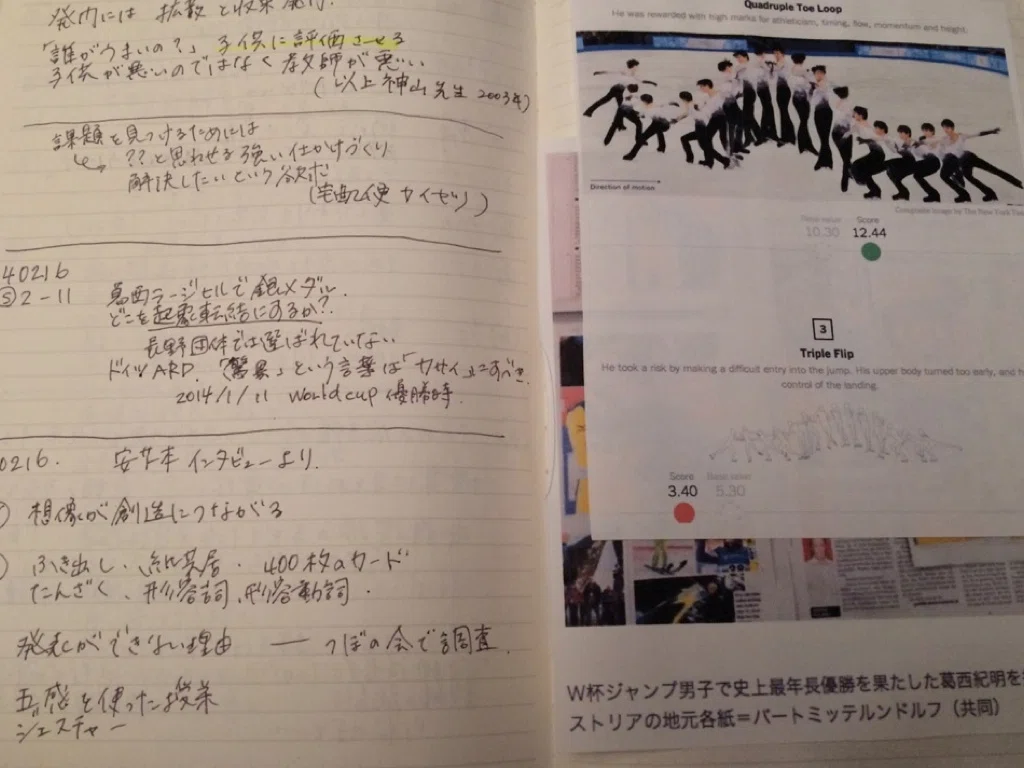 発問には 拡散と収束 発行.
「誰がうまいの？」子供に評価させる
子供が悪いのではなく教師が悪い
(以上 神山先生 2003年)
課題を見つけるためには
?? と思わせる強い仕かけづくり
解決したいという欲求
(宅配便 カイゼリ)
40216
Ⓢ2-11 葛西ラージヒルで銀メダル.
どこを起承転結にするか？
長野団体では選ばれていない
ドイツARD. 「驚異」という言葉は「カサイ」にすべき.
2014/1/11 World cup 優勝時.
0216. 安井本 インタビューより.
想像が創造につながる
ふき出し、紙芝居. 400枚のカード
たんざく、形容詞、形容動詞.
発表ができない理由 ― つぼの会で調査.
五感を使った授業
ジェスチャー
Quadruple Toe Loop
He was rewarded with high marks for athleticism, timing, flow, momentum and height.
Direction of motion
Composite image by The New York Times
Base value Score
10.30 12.44
3
Triple Flip
He took a risk by making a difficult entry into the jump. His upper body turned too early, and h
control of the landing.
Score Base value
3.40 5.30
W杯ジャンプ男子で史上最年長優勝を果たした葛西紀明を
ストリアの地元各紙＝バートミッテルンドルフ（共同）